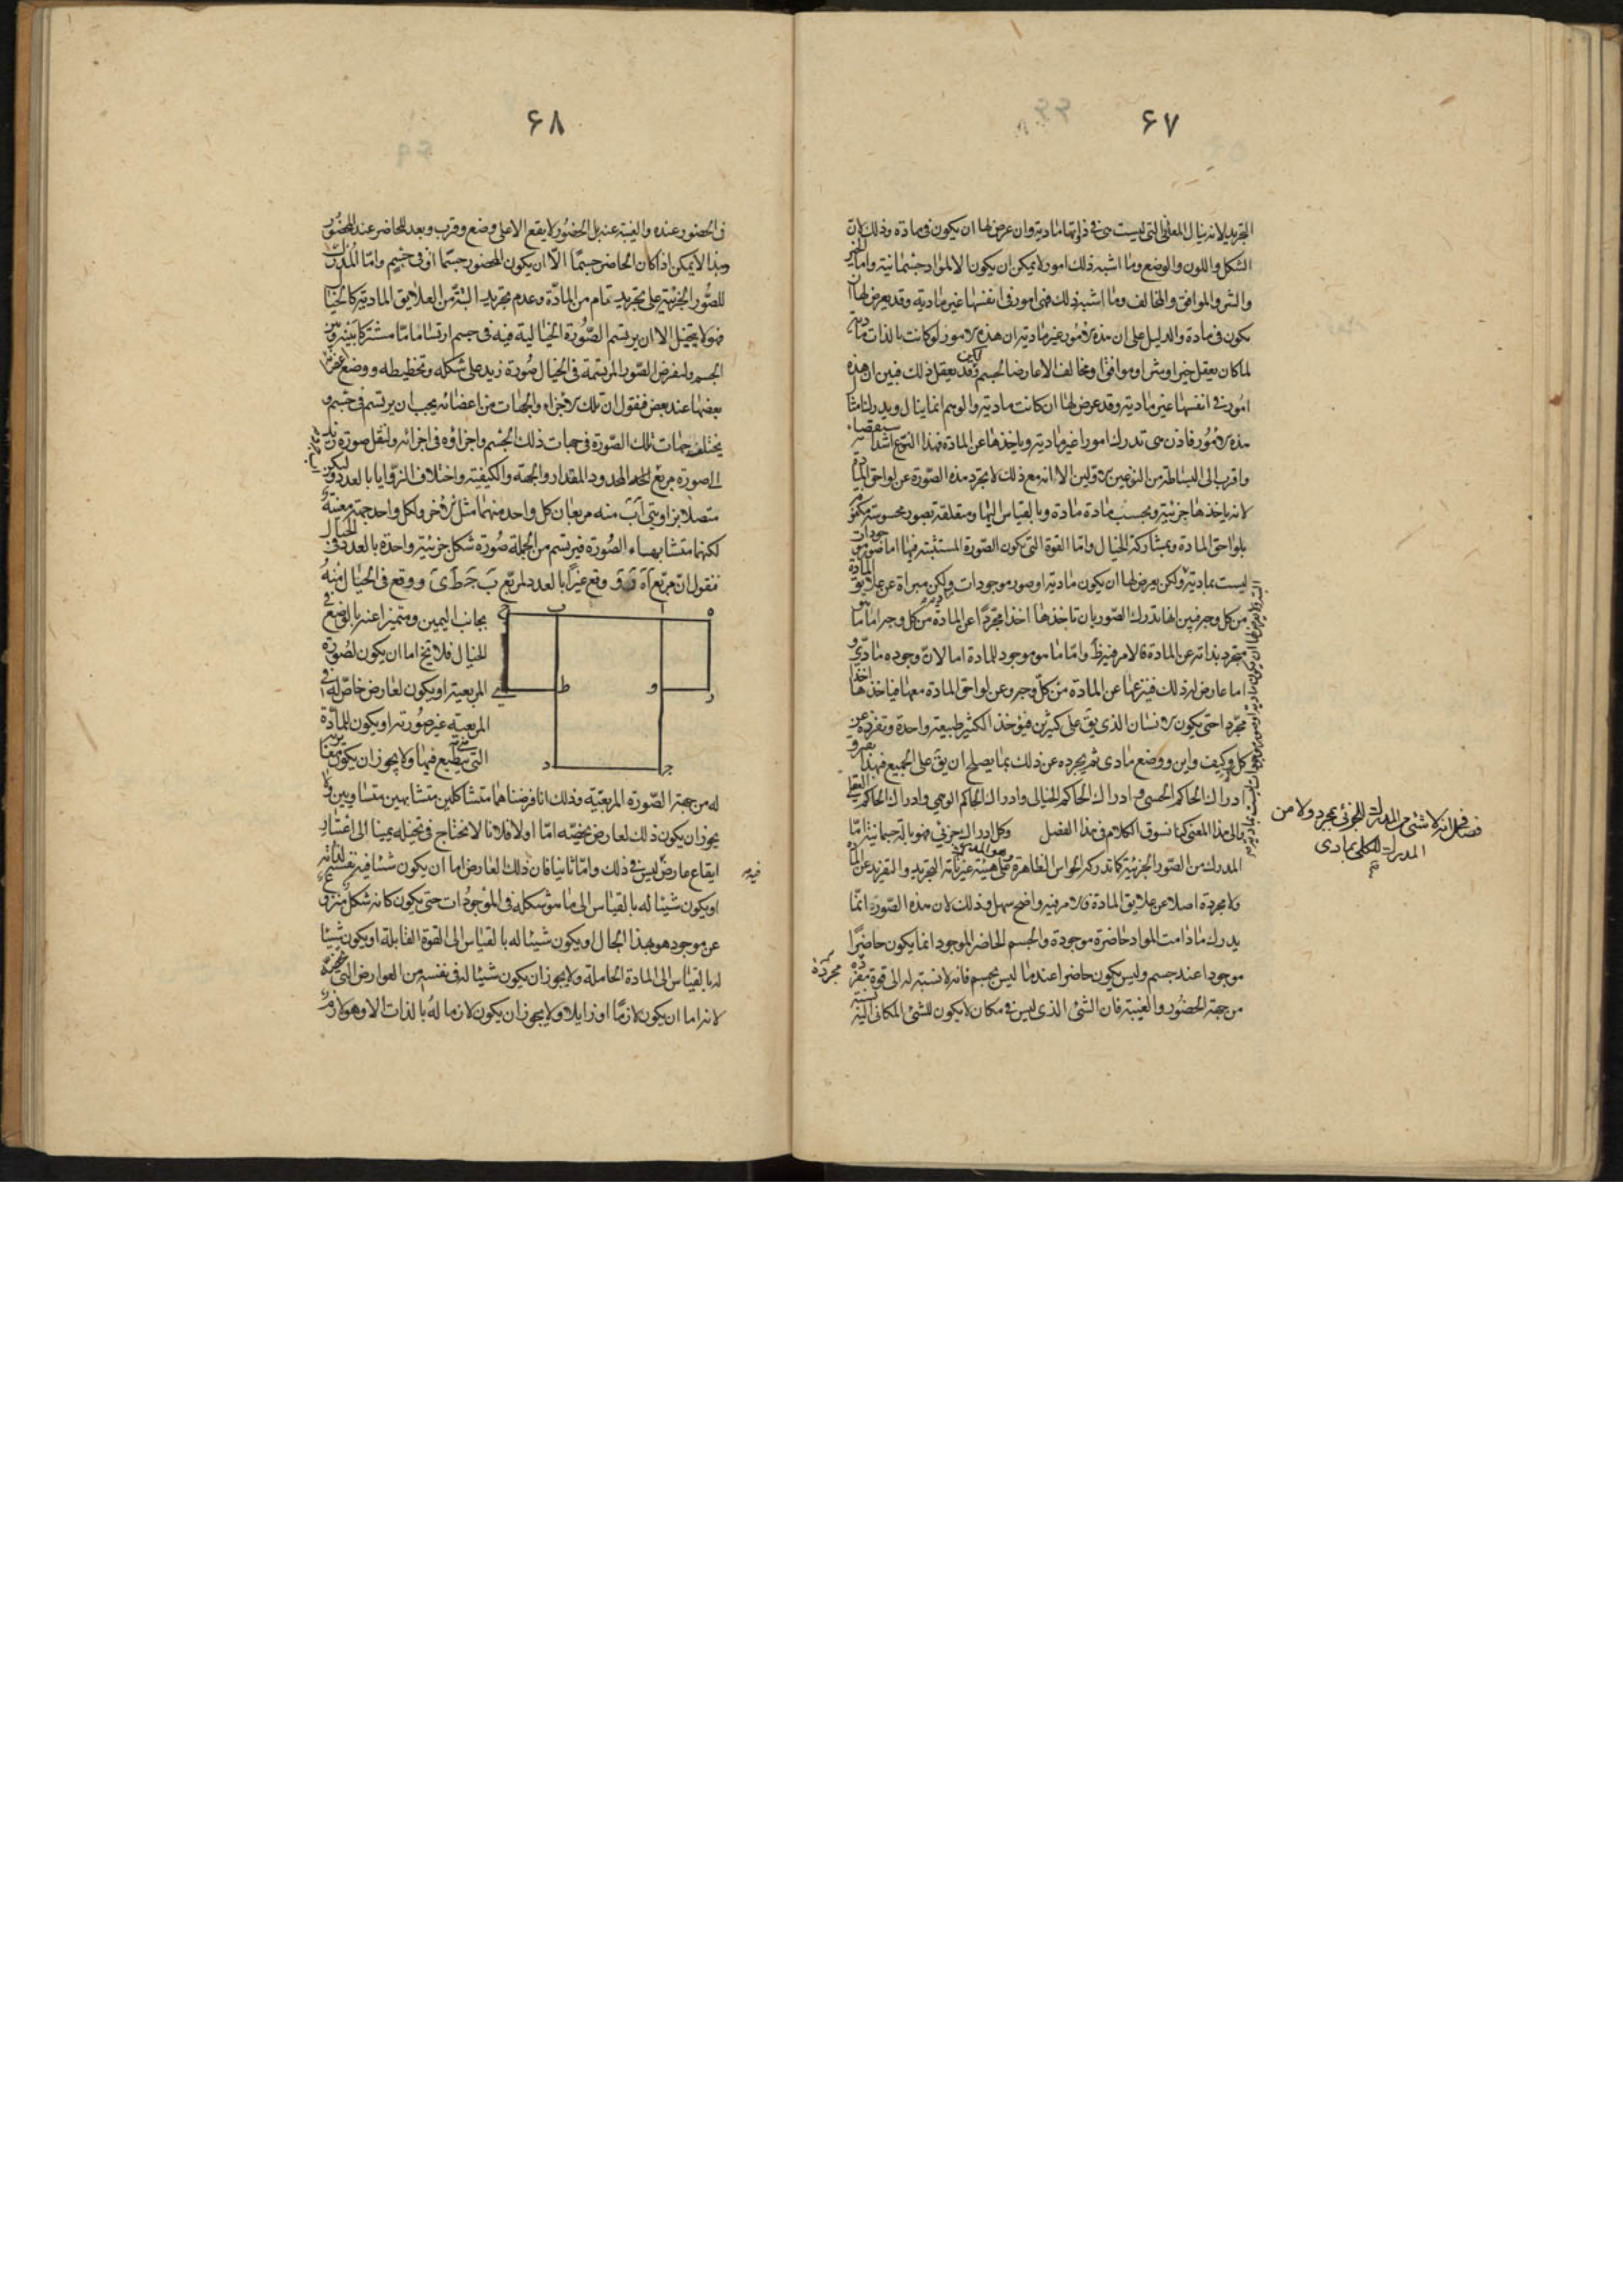 ۶۷
التجريد لانه ينال المعانى التى ليست هى فى ذواتها مادية وان عرض لها ان يكون فى مادة وذلك لان
الشكل واللون والوضع وما اشبه ذلك امور لا يمكن ان يكون الا لمواد جسمانية واما الخير
والشر والموافق والمخالف وما اشبه ذلك فهى امور فى انفسها غير مادية وقد يعرض لها ان
يكون فى مادة والدليل على ان هذه الامور غير مادية ان هذه الامور لو كانت بالذات مادية
لما كان يعقل خير او شر او موافق او مخالف الا عارضا لجسم وقد يعقل ذلك فبين ان هذه
امور فى انفسها غير مادية وقد عرض لها ان كانت مادية والوهم انما ينال ويدرك امثال
هذه الامور فاذن هى تدرك امورا غير مادية وياخذها عن المادة فهذا النوع اشد استقصاء
واقرب الى البساطة من النوعين الاولين الا انه مع ذلك لا يجرد هذه الصورة عن لواحق المادة
لانه ياخذها جزئية وبحسب مادة مادة وبالقياس اليها ومتعلقة بصور محسوسة مكنوفة
بلواحق المادة وبمشاركة الخيال واما القوة التى يكون الصورة المستثبتة فيها اما صور موجودات
ليست بمادية ولكن يعرض لها ان يكون مادية او صور موجودات ولكن مبراة عن علايق المادة
من كل وجه فبين انها تدرك الصور بان تاخذها اخذا مجردا عن المادة من كل وجه اما ما هو
متجرد بذاته عن المادة فالامر فيه ظ واما ما هو موجود للمادة اما لان وجوده مادى و
اما عارض له ذلك فينزعها عن المادة من كل وجه وعن لواحق المادة معها فياخذها اخذا
مجردا حتى يكون الانسان الذى يق على كثيرين فيؤخذ الكثير طبيعة واحدة وتفرزه عن
كل كم وكيف واين ووضع مادى ثم يجرده عن ذلك بما يصلح ان يق على الجميع فبهذا يفترق
ادراك الحاكم الحسى وادراك الحاكم الخيالى وادراك الحاكم الوهمى وادراك الحاكم العقلى
والى هذا المعنى كما نسوق الكلام فى هذا الفصل وكل ادراك جزئى فهو بالة جسمانية اما
المدرك من الصور الجزئية كما تدركه الحواس الظاهرة على هيئة غير تامة التجريد والتفريد عن المادة
ولا مجردة اصلا عن علايق المادة فالامر فيه واضح سهل وذلك لان هذه الصورة انما
يدرك ما دامت المواد حاضرة موجودة والجسم الحاضر الموجود انما يكون حاضرا
موجودا عند جسم وليس يكون حاضرا عند ما ليس بجسم فانه لا نسبة له الى قوة مفردة
من جهة الحضور والغيبة فان الشئ الذى ليس فى مكان لا يكون للشئ المكانى اليه نسبة
فصل فى انه لا شئ من المدرك للجزئى بمجرد ولا من
المدرك للكلى بمادى
مجردة
۶۸
فى الحضور عنده والغيبة عنه بل الحضور لا يقع الا على وضع وقرب وبعد للحاضر عند المحضور
وهذا لا يمكن اذا كان الحاضر جسما الا ان يكون المحضور جسما او فى جسم واما المدرك
للصور الجزئية على تجريد تمام من المادة وعدم تجريد البتة من العلايق المادية كالخيال
فهو لا يتخيل الا ان يرتسم الصورة الخيالية فيه فى جسم ارتساما ما مشتركا بينه وبين
الجسم ولنفرض الصور المرتسمة فى الخيال صورة زيد على شكله وتخطيطه ووضع اعضائه
بعضها عند بعض فنقول ان تلك الاجزاء والجهات من اعضائه يجب ان يرتسم فى جسم و
يختلف جهات تلك الصورة فى جهات ذلك الجسم واجزاؤه فى اجزائه ولننقل صورة زيد
الى صورة مربع المحدود المقدار والجهة والكيفية واختلاف الزوايا بالعدد وليكن
متصلا بزاويتى آ ب منه مربعان كل واحد منهما مثل الاخر ولكل واحد جهة معينة
لكنهما متشابها الصورة فيرتسم من الجملة صورة شكل جزئية واحدة بالعدد فى الخيال
فنقول ان مربع آ ه ز و وقع غيرا بالعدد لمربع ب ح ط ى ووقع فى الخيال منه
بجانب اليمين ومتميزا عنه بالوضع فى
الخيال فلا يخ اما ان يكون لصورة
المربعية او يكون لعارض خاص له فى
المربعية غير صورته او يكون للمادة
التى ينطبع فيها ولا يجوز ان يكون مغايرته
ه ا ب ح
ر و ط ى
ج د
له من جهة الصورة المربعية وذلك انا فرضناهما متشاكلين متشابهين متساويين ولا
يجوز ان يكون ذلك لعارض يخصه اما اولا فلانا لا نحتاج فى تخيله يمينا الى اعتبار
ايقاع عارض ليس فى ذلك واما ثانيا فان ذلك العارض اما ان يكون شيئا فيه نفسه لذاته
او يكون شيئا له بالقياس الى ما هو شكله فى الموجودات حتى يكون كانه شكل منزوع
عن موجود هو بهذا الحال او يكون شيئا له بالقياس الى القوة القابلة او يكون شيئا
له بالقياس الى المادة الحاملة ولا يجوز ان يكون شيئا له فى نفسه من العوارض التى تخصه
لانه اما ان يكون لازما او زايلا ولا يجوز ان يكون لازما له بالذات الا وهو لازم
فيه